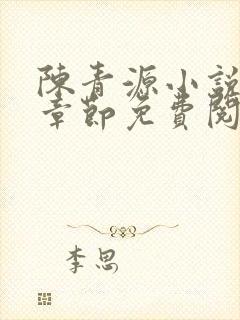 陳青源小說
章節免費閱
李思